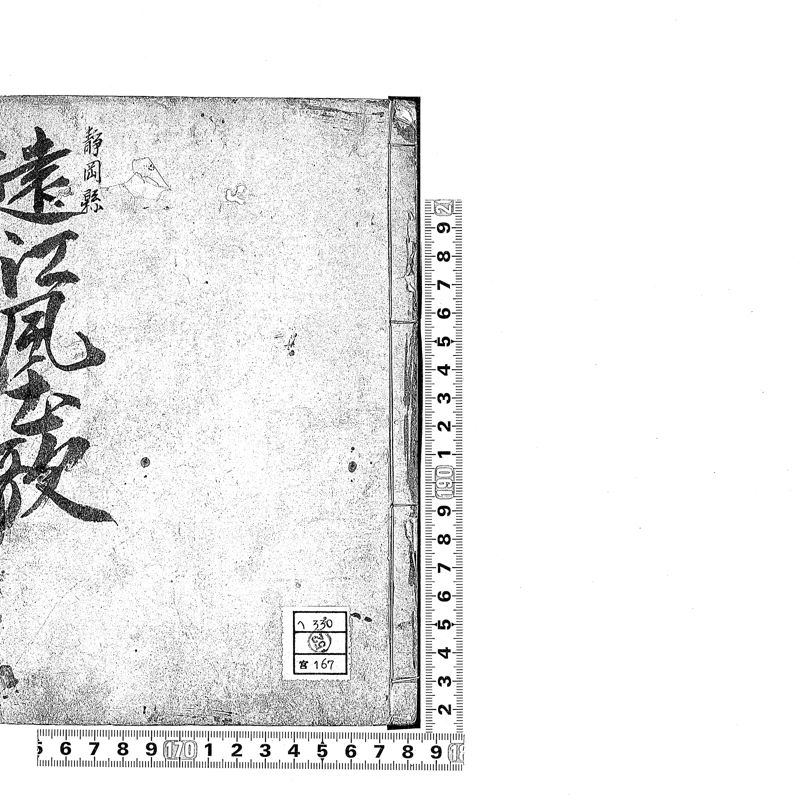 静岡縣
遠江風土歌
へ 330
宮 167
9 8 7 6 5 4 3 2 1 190 9 8 7 6 5 4 3 2
6 7 8 9 170 1 2 3 4 5 6 7 8 9